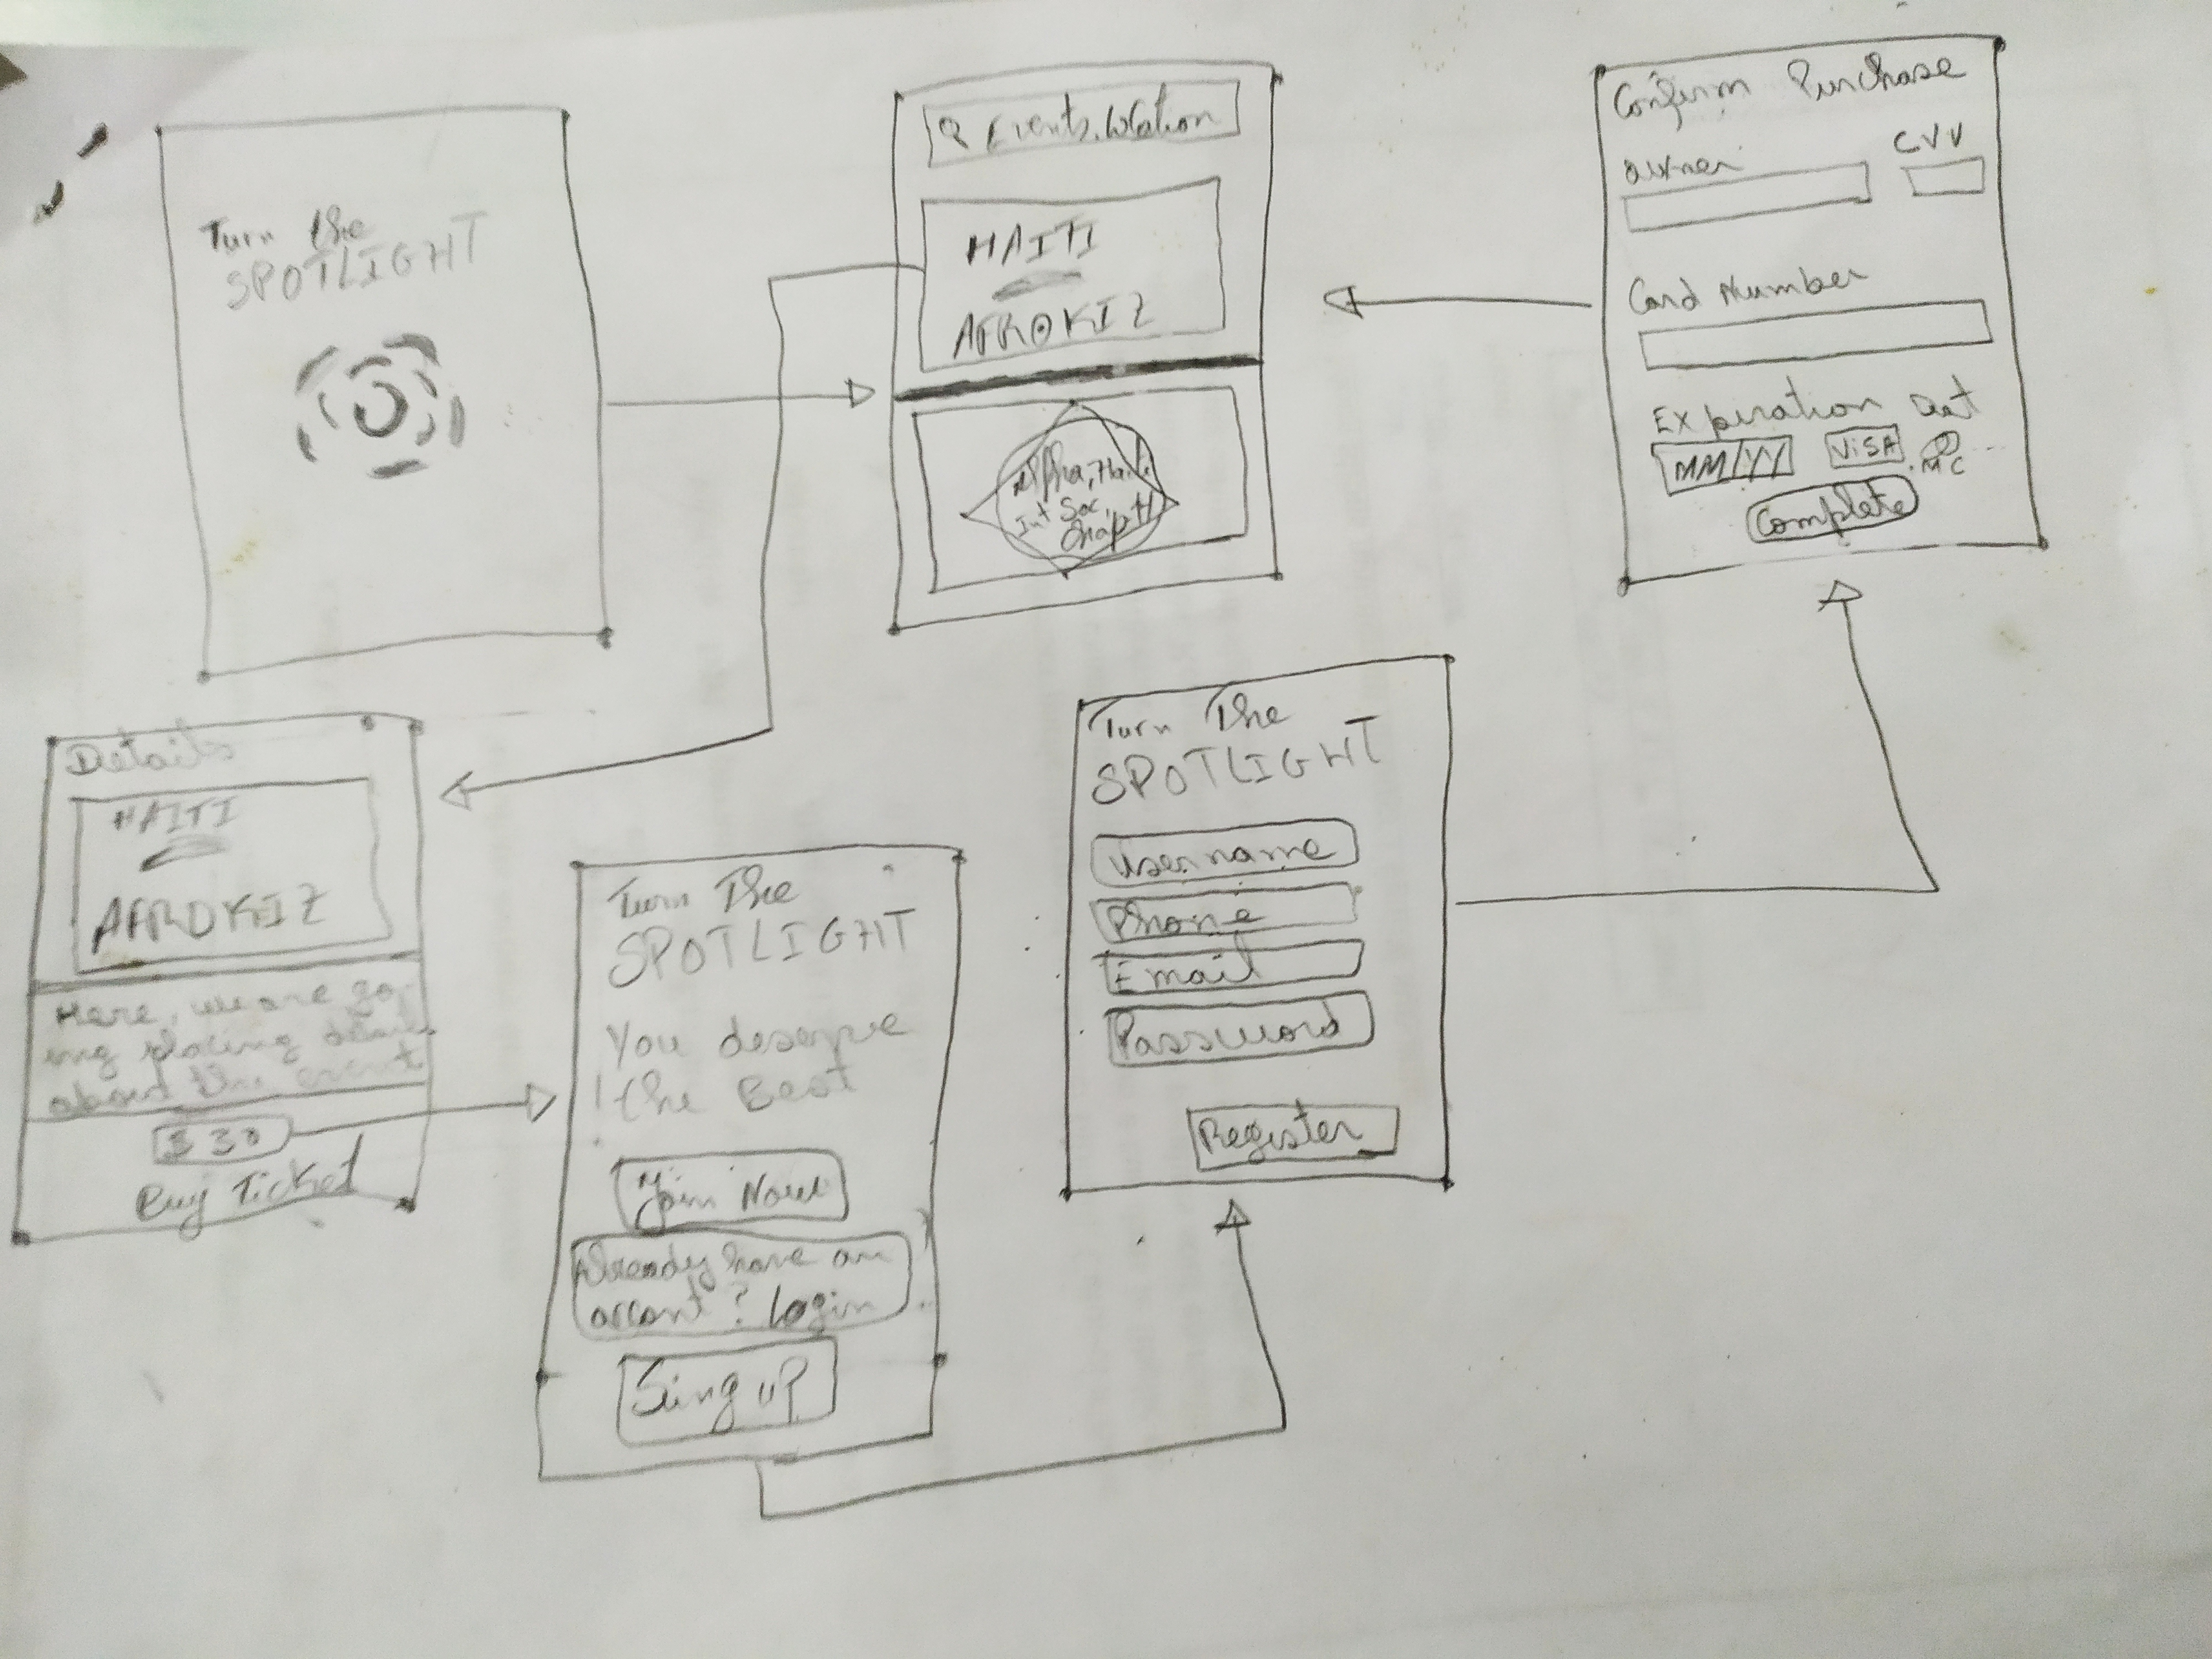 Turn the
SPOTLIGHT
Events, Location
HAITI
AFROKIZ
Alpha, Haiti
Int Soc,
Confirm Purchase
owner
CVV
Card Number
Expiration Dat
MM/YY
VISA
MC
Complete
Details
HAITI
AFROKIZ
Here, we are go
ing placing
about the event
$ 30
Buy Ticket
Turn The
SPOTLIGHT
You deserve
the Best
Join Now
Already have an
accont? Login
Sing up
Turn The
SPOTLIGHT
Username
Phone
Email
Password
Register